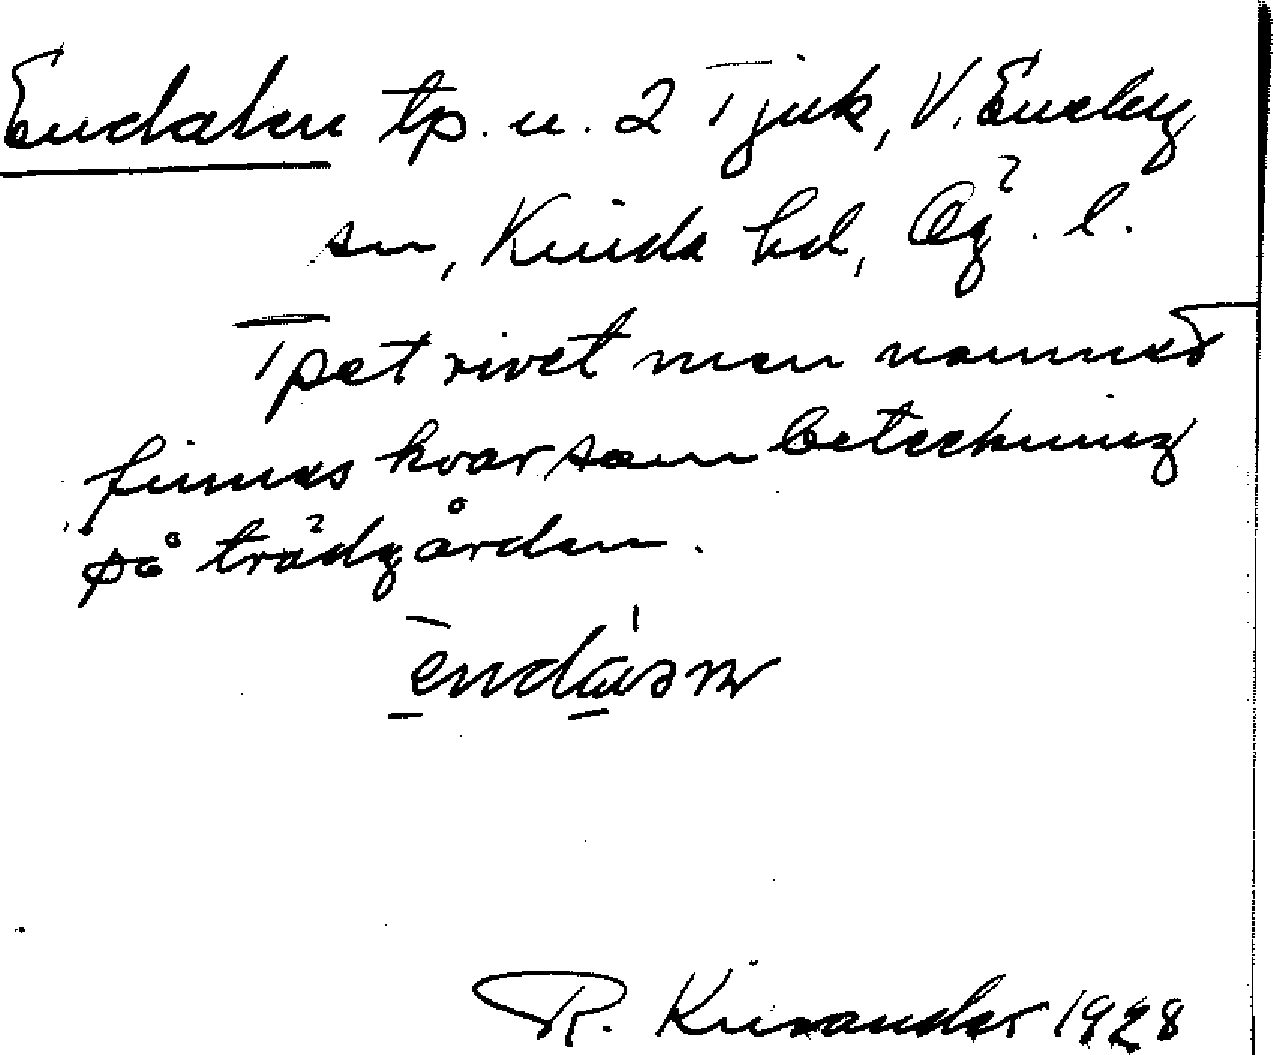 Endalen tp. u. 2 Tjuk, V. Eneby
sn, Kinda hd, Ög. l.
Tpet rivet men namnet
finnes kvar som beteckning
på trädgården.
R. Kinander 1928